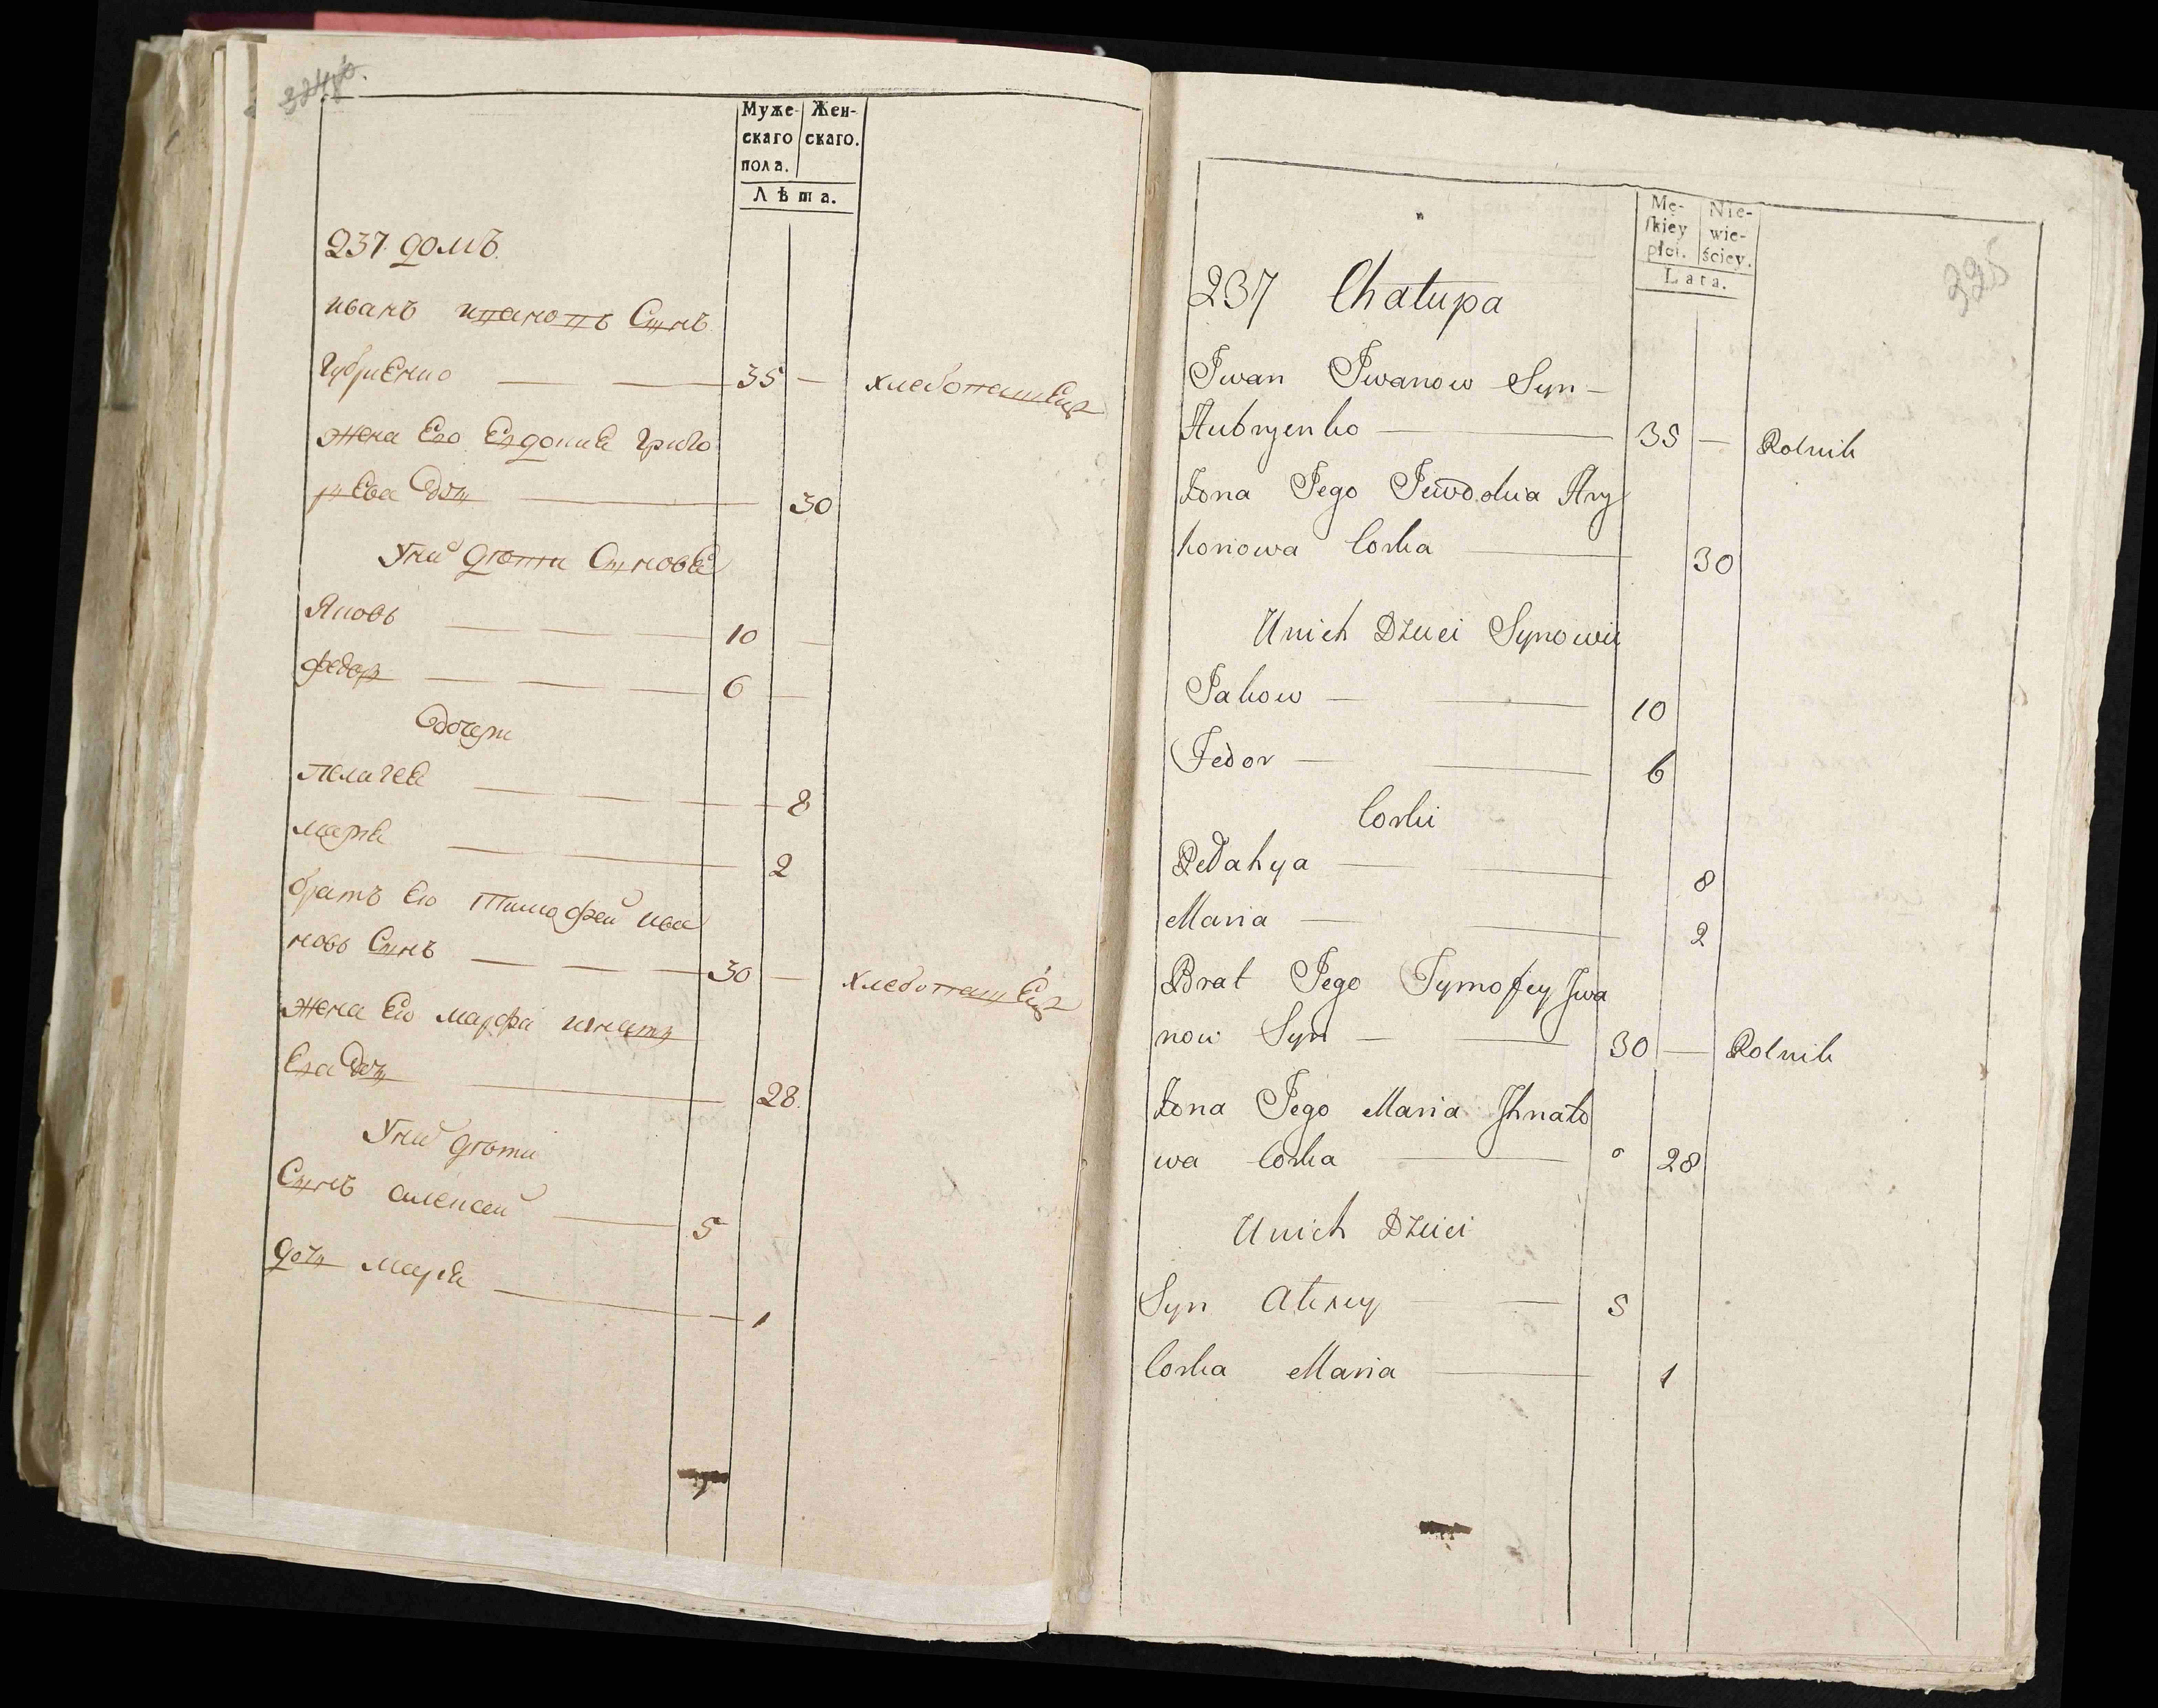 Муже- Жен-
скаго скаго.
пола.
Лѣта.
237. домъ
иванъ ивановъ Сынъ
Губриенко 35 — хлебопашецъ
жена Его Евдокия Григо
рьева дочь 30
У них дѣти Сыновья
Яковъ 10 —
федоръ 6 —
дочери
пелагея 8
мария 2
братъ Его Тимофей Ива
новъ Сынъ 30 — хлебопашецъ
жена Его марфа игнать
Ева дочь 28.
У них дѣти
Сынъ алексей 5
дочь мария 1
325
Mę- Nie-
skiey wie-
płci. ściey.
Lata.
237 Chałupa
Jwan Jwanow Syn —
Hubryenko 35 — Rolnik
Żona Jego Jewdokia Hry
horiowa Corka 30
Unich Dzieci Synowie
Jakow 10
Fedor 6
Corki
Pełahya 8
Maria 2
Brat Jego Tymofey Jwa
now Syn 30 — Rolnik
Żona Jego Maria Jhnato
wa Corka 28
Unich Dzieci
Syn Alexey 5
Corka Maria 1